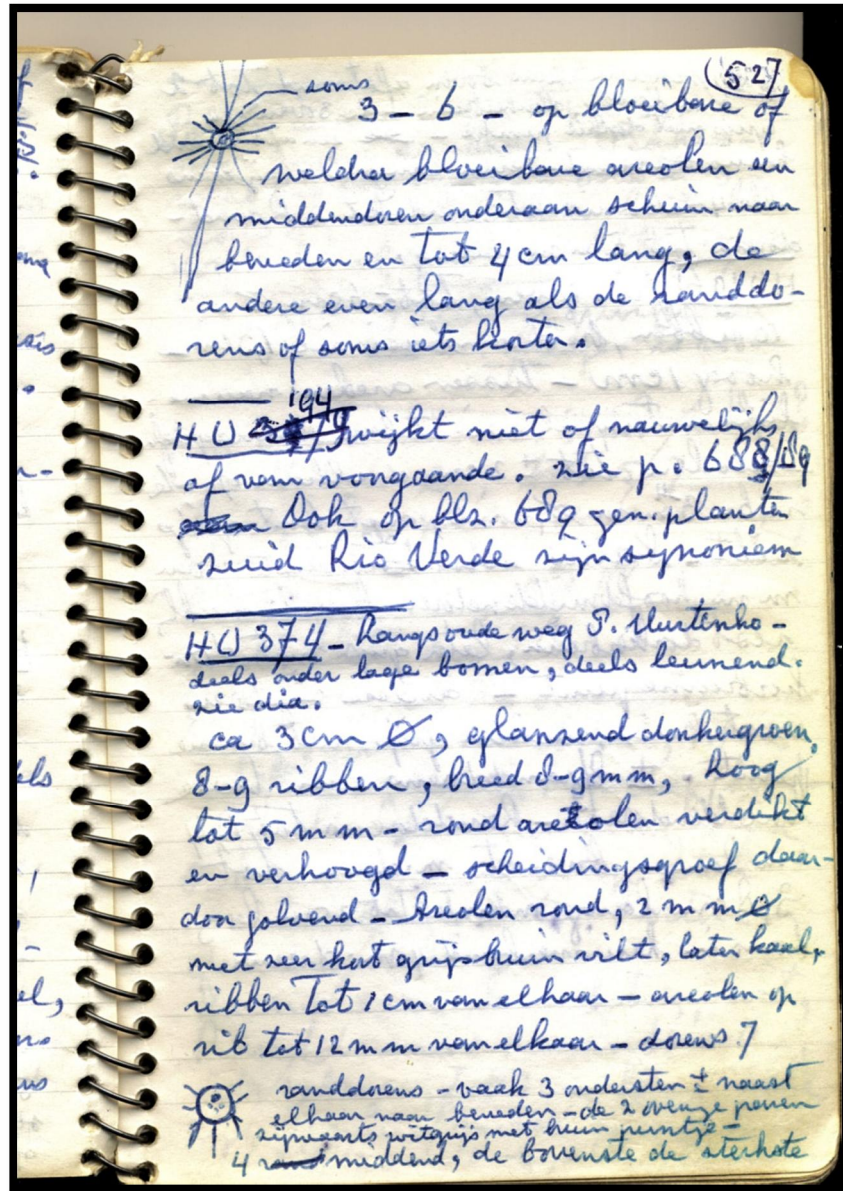 527
soms
3 - 6 - op bloeibare of
welcher bloeibare areolen een
middendoren onderaan schuin naar
beneden en tot 4 cm lang, de
andere even lang als de randdo-
rens of soms iets korter.
194
HU wijkt niet of nauwelijks
af vam voorgaande. zie p. 688/89
Ook op blz. 689 gen. planten
zuid Rio Verde zijn synoniem
HU 374 - langs oude weg P. Murtinho -
deels onder lage bomen, deels leunend.
zie dia.
ca 3 cm Ø, glanzend donkergroen,
8-9 ribben, breed 8-9 mm, hoog
tot 5 mm - rond areolen verdikt
en verhoogd - scheidingsgroef daar-
door golvend - Areolen rond, 2 mm Ø
met zeer kort grijsbruin vilt, later kaal,
ribben tot 1 cm van elkaar - areolen op
rib tot 12 mm van elkaar - dorens 7
randdorens - vaak 3 ondersten ± naast
elkaar naar beneden - de 2 overige paren
zijwaarts witgrijs met bruin puntje -
4 middend, de bovenste de sterkste